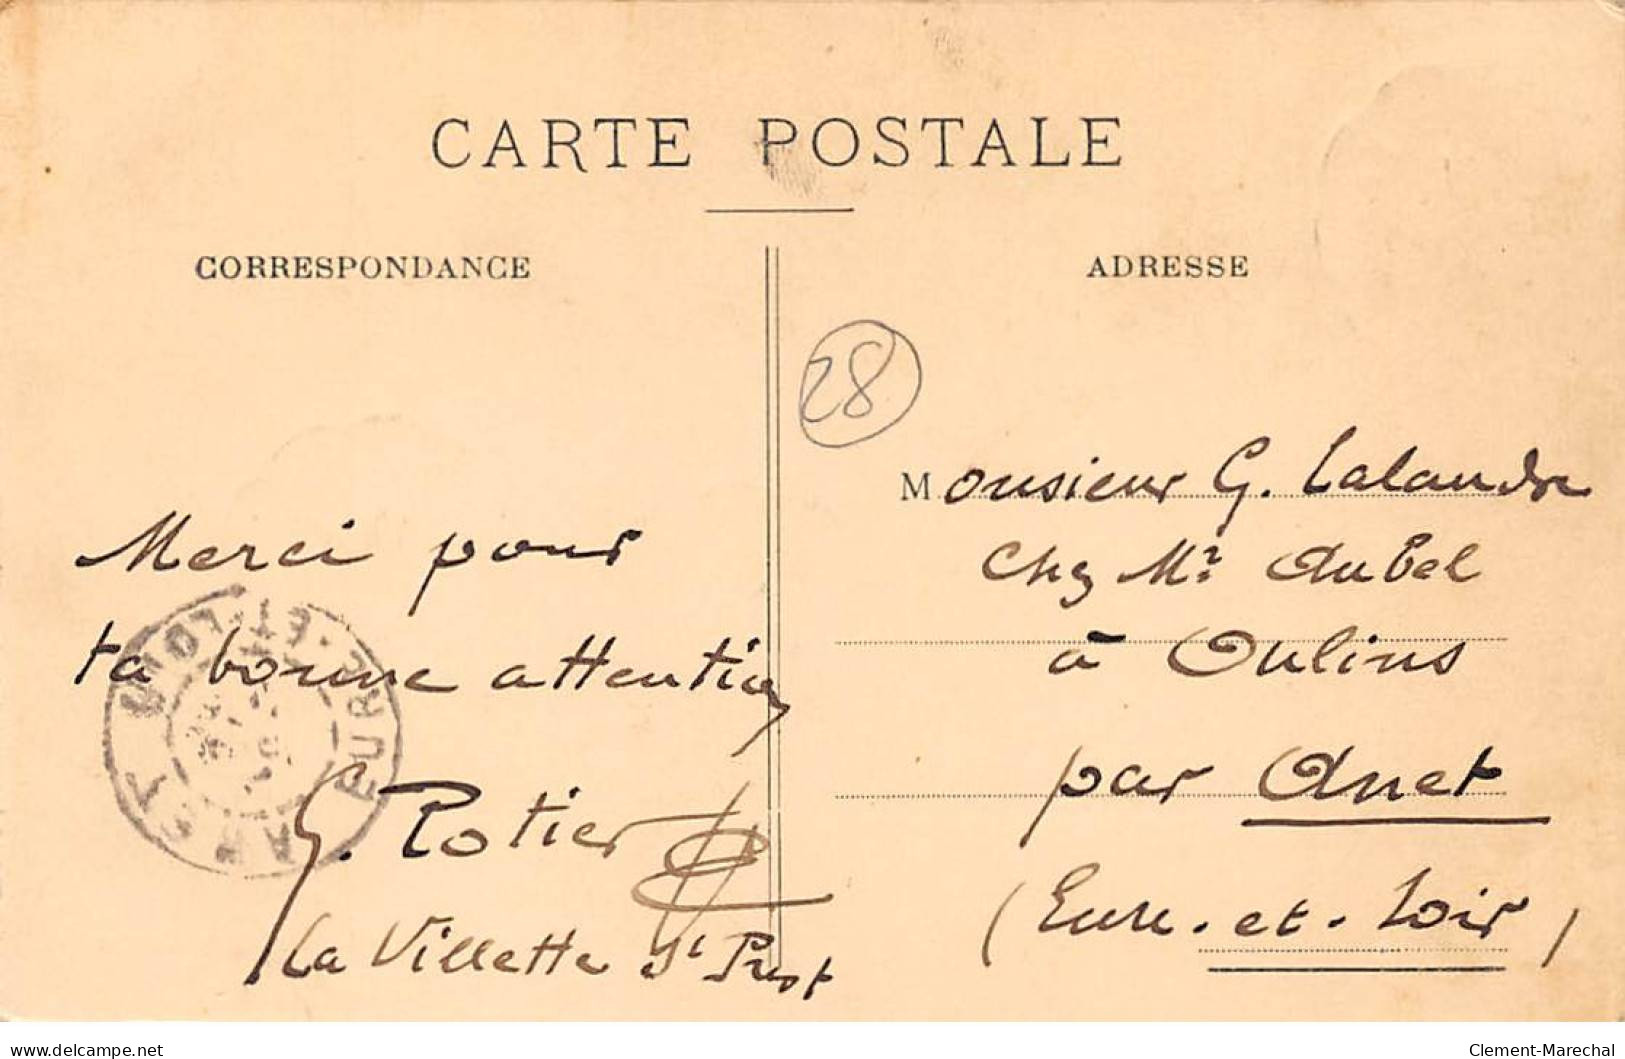 CARTE POSTALE
CORRESPONDANCE
ADRESSE
28
Merci pour
ta bonne attention
G. Potier
La Villette St Prest
Monsieur G. Lalandre
Chez Mr Aubel
à Oulins
par Anet
(Eure-et-Loir)
ANET EURE-ET-LOIR
www.delcampe.net
Clement-Marechal